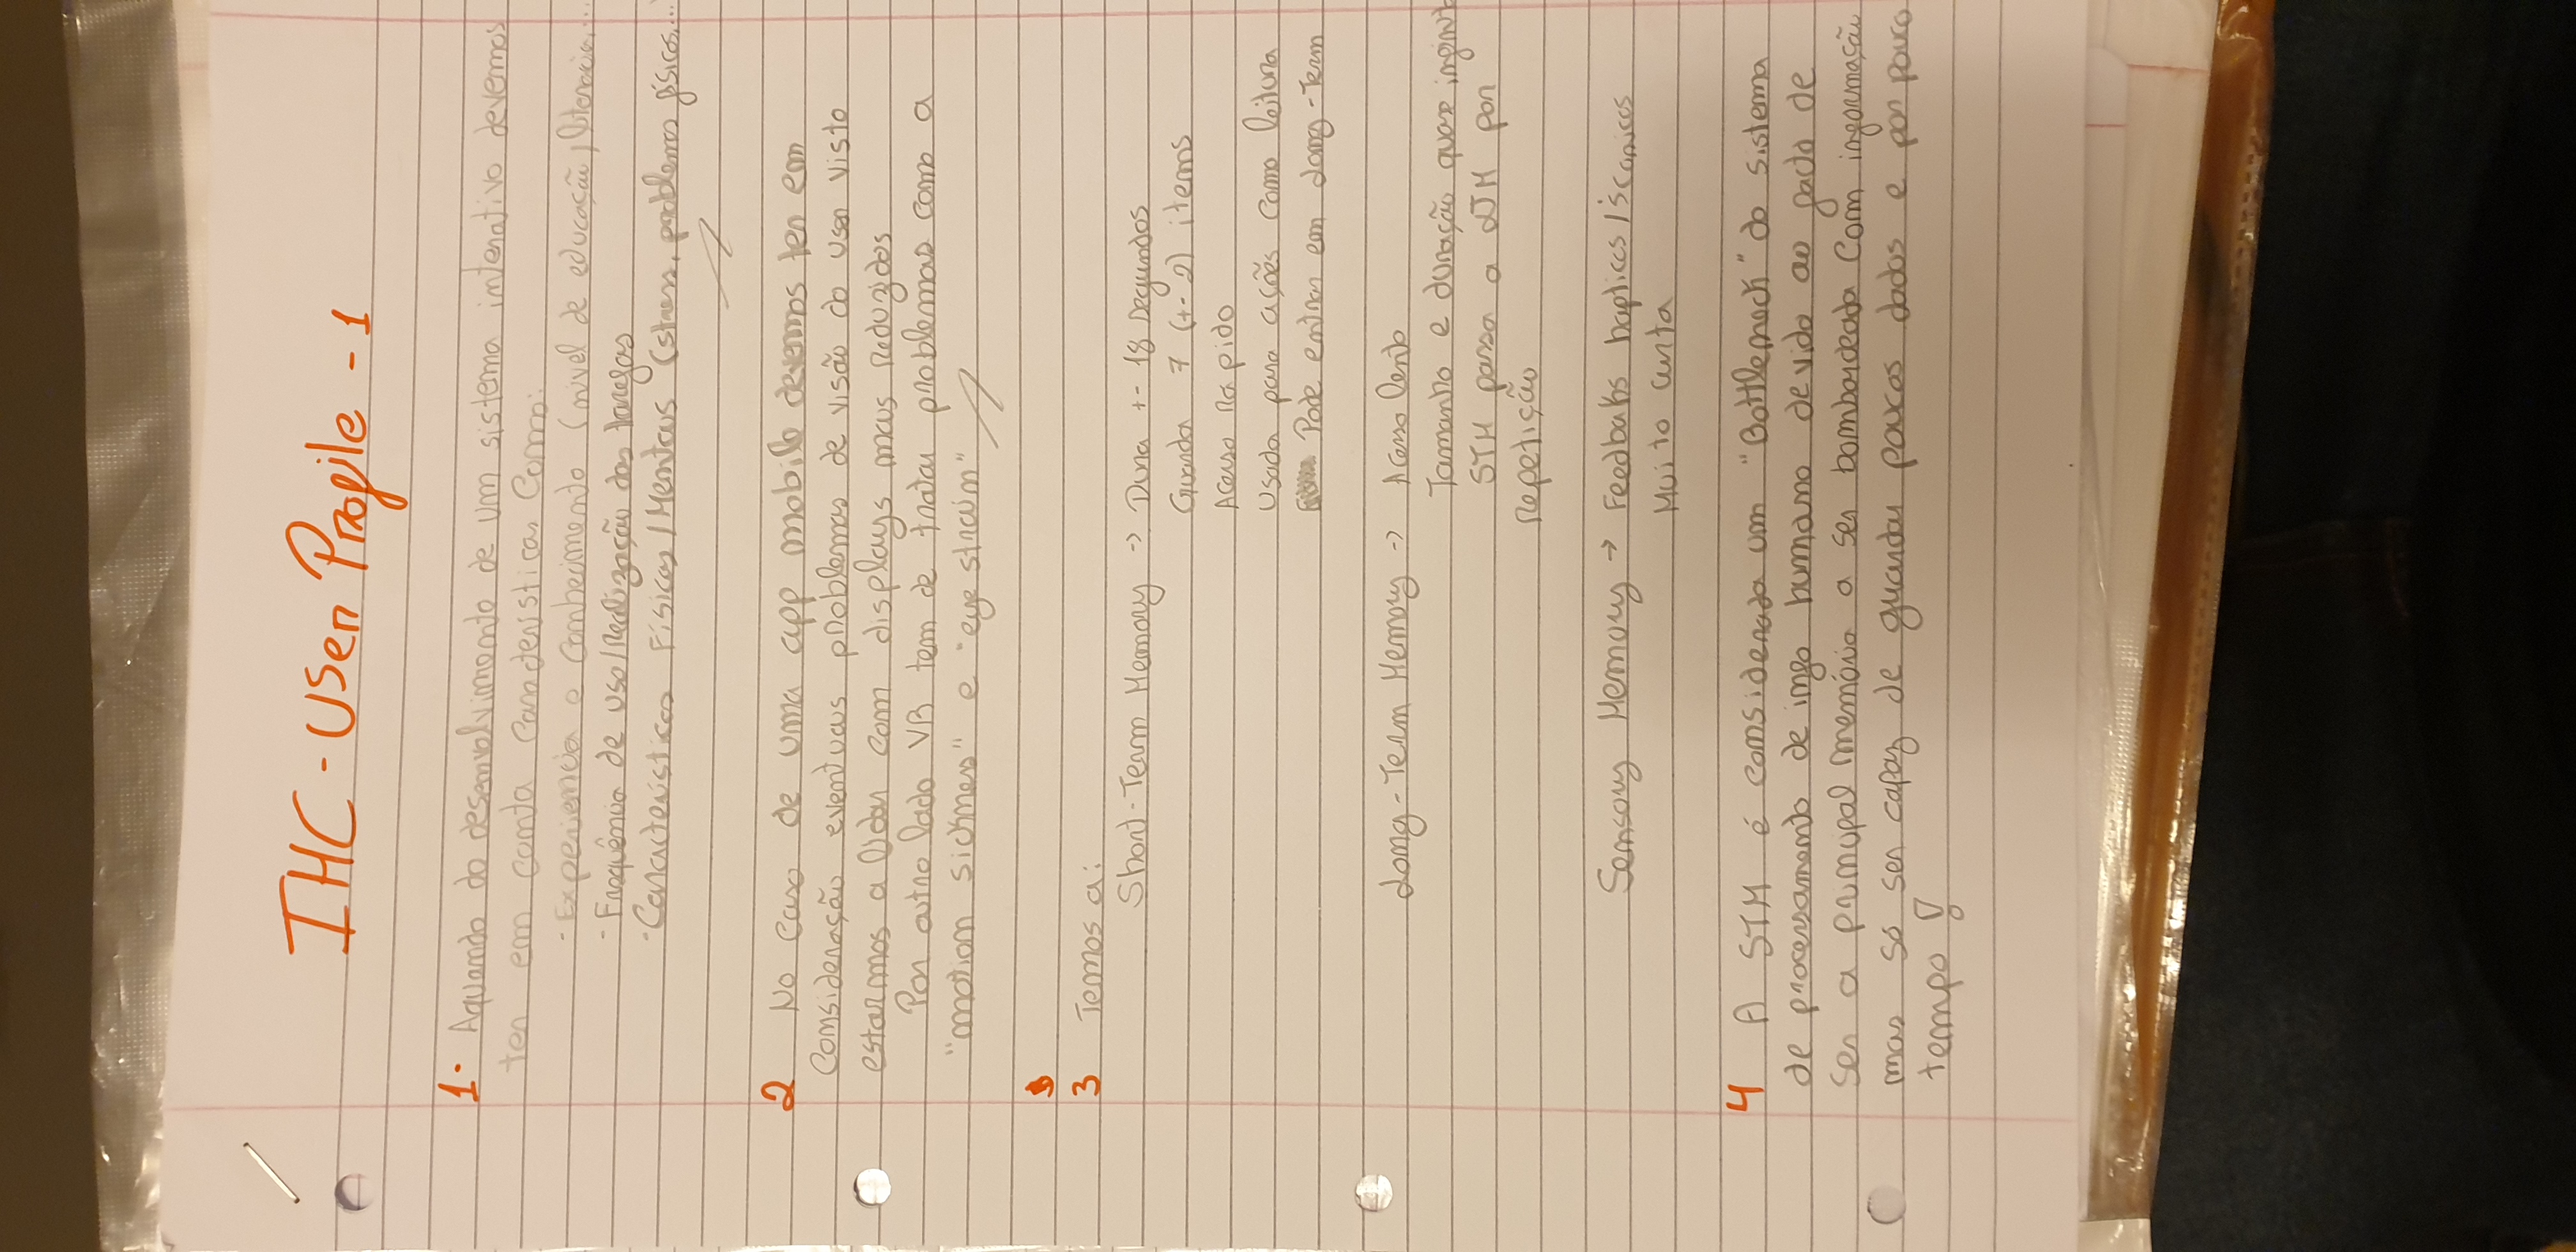 IHC - User Profile - 1
1. Aquando do desenvolvimento de um sistema interativo devermos
ter em conta Caracteristicas Como:
- Experiencia e Conhecimento (nivel de educação, literacia,...
- Frequência de uso/Realização das tarefas
- Caracteristicas Físicas/Mentais (stress, problemas físicos,...
2 No caso de uma app mobile devemos ter em
Consideração eventuais problemas de visão do user visto
estarmos a lidar com displays mais Reduzidos
Por outro lado VR tem de tratar problemas como a
"motion sickness" e "eye strain"
3 Temos a:
Short-Term Memory -> Dura +- 18 segundos
Guarda 7 (+- 2) items
Acesso Rápido
Usada para ações como leitura
Pode entrar em Long-Term
Long-Term Memory -> Acesso lento
Tamanho e duração quase infinit
STM passa a LTM por
Repetição
Sensory Memory -> Feedbaks hapticos/
Muito curta
4 A STM é considerada um "Bottleneck" do sistema
de processamento de info humano devido ao facto de
ser a principal memória a ser bombardeada Com informação
mas só ser capaz de guardar poucos dados e por pouco
tempo!